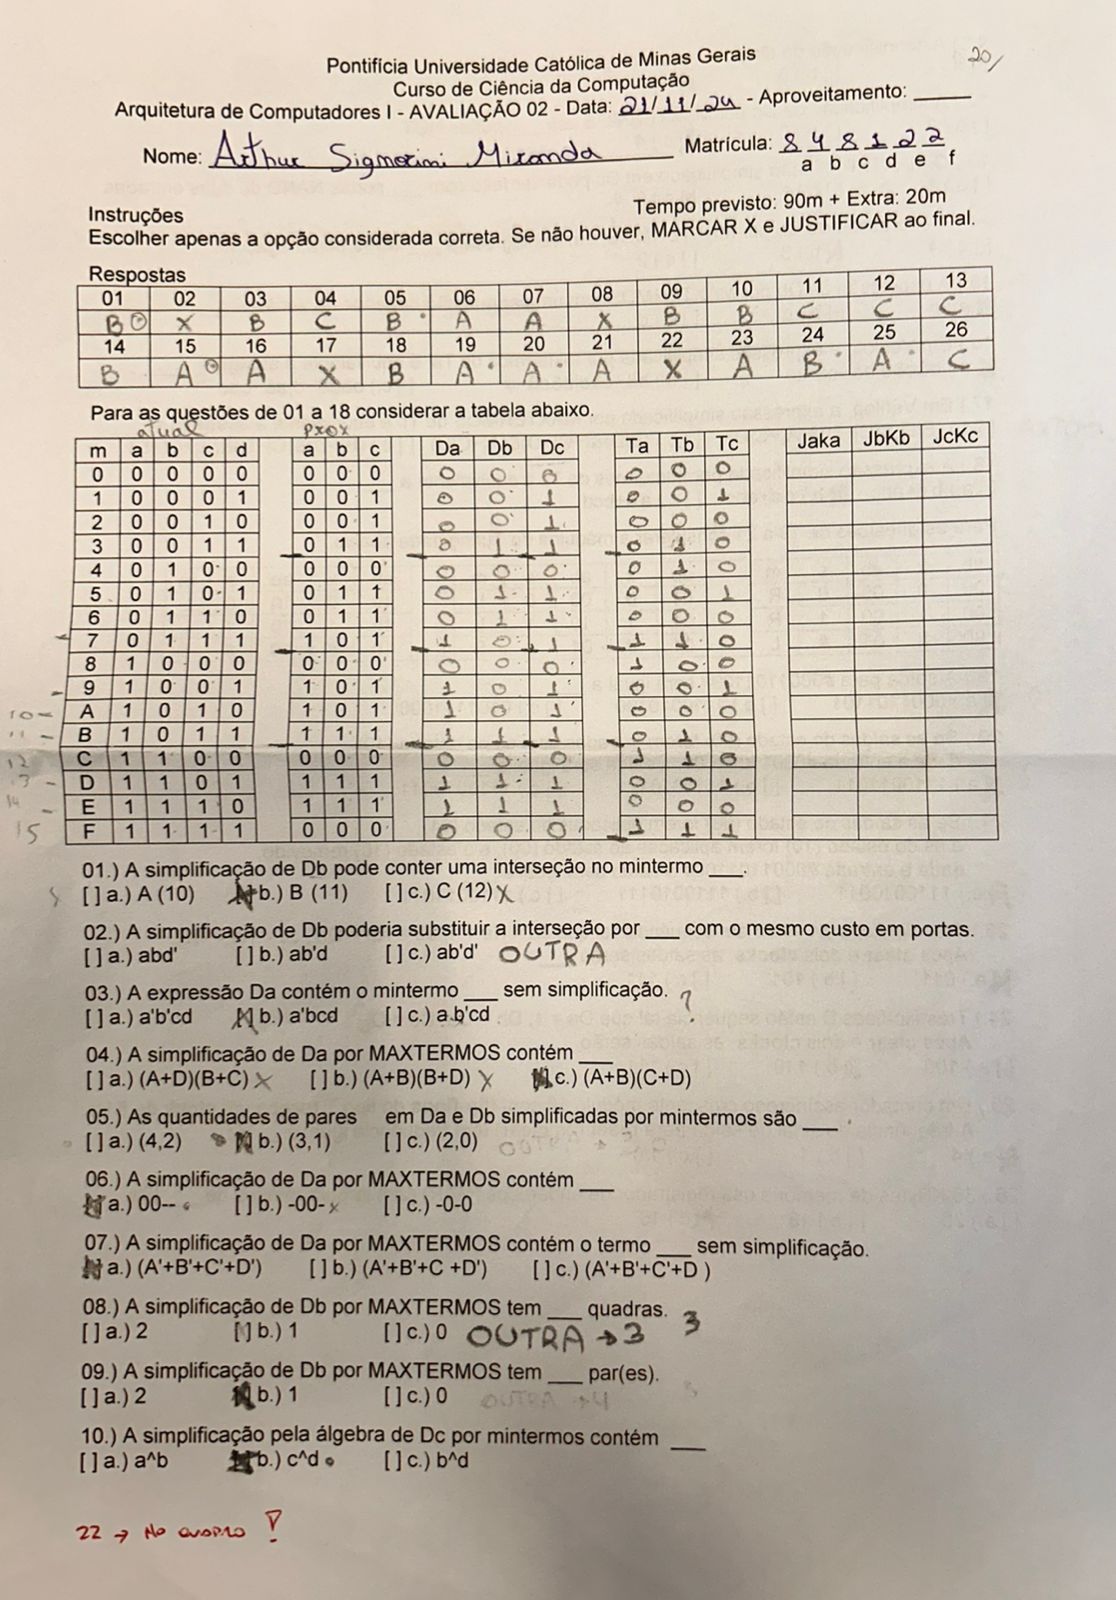 20/
Pontifícia Universidade Católica de Minas Gerais
Curso de Ciência da Computação
Arquitetura de Computadores I - AVALIAÇÃO 02 - Data: 21/11/24 - Aproveitamento: _____
Nome: Arthur Signorini Miranda Matrícula: 8 4 8 1 2 2
a b c d e f
Instruções Tempo previsto: 90m + Extra: 20m
Escolher apenas a opção considerada correta. Se não houver, MARCAR X e JUSTIFICAR ao final.
Respostas
01 02 03 04 05 06 07 08 09 10 11 12 13
B X B C B A A X B B C C C
14 15 16 17 18 19 20 21 22 23 24 25 26
B A A X B A A A X A B A C
Para as questões de 01 a 18 considerar a tabela abaixo.
atual prox
m a b c d a b c Da Db Dc Ta Tb Tc Jaka JbKb JcKc
0 0 0 0 0 0 0 0 0 0 0 0 0 0
1 0 0 0 1 0 0 1 0 0 1 0 0 1
2 0 0 1 0 0 0 1 0 0 1 0 0 0
3 0 0 1 1 0 1 1 0 1 1 0 1 0
4 0 1 0 0 0 0 0 0 0 0 0 1 0
5 0 1 0 1 0 1 1 0 1 1 0 0 1
6 0 1 1 0 0 1 1 0 1 1 0 0 0
7 0 1 1 1 1 0 1 1 0 1 1 1 0
8 1 0 0 0 0 0 0 0 0 0 1 0 0
9 1 0 0 1 1 0 1 1 0 1 0 0 1
10 A 1 0 1 0 1 0 1 1 0 1 0 0 0
11 B 1 0 1 1 1 1 1 1 1 1 0 1 0
12 C 1 1 0 0 0 0 0 0 0 0 1 1 0
13 D 1 1 0 1 1 1 1 1 1 1 0 0 1
14 E 1 1 1 0 1 1 1 1 1 1 0 0 0
15 F 1 1 1 1 0 0 0 0 0 0 1 1 1
01.) A simplificação de Db pode conter uma interseção no mintermo ___.
[ ] a.) A (10) [X] b.) B (11) [ ] c.) C (12) X
02.) A simplificação de Db poderia substituir a interseção por ___ com o mesmo custo em portas.
[ ] a.) abd' [ ] b.) ab'd [ ] c.) ab'd' OUTRA
03.) A expressão Da contém o mintermo ___ sem simplificação. ?
[ ] a.) a'b'cd [X] b.) a'bcd [ ] c.) a.b'cd
04.) A simplificação de Da por MAXTERMOS contém ___
[ ] a.) (A+D)(B+C) X [ ] b.) (A+B)(B+D) X [X] c.) (A+B)(C+D)
05.) As quantidades de pares em Da e Db simplificadas por mintermos são ___
[ ] a.) (4,2) [X] b.) (3,1) [ ] c.) (2,0)
06.) A simplificação de Da por MAXTERMOS contém ___
[X] a.) 00-- [ ] b.) -00- x [ ] c.) -0-0
07.) A simplificação de Da por MAXTERMOS contém o termo ___ sem simplificação.
[X] a.) (A'+B'+C'+D') [ ] b.) (A'+B'+C +D') [ ] c.) (A'+B'+C'+D )
08.) A simplificação de Db por MAXTERMOS tem ___ quadras. 3
[ ] a.) 2 [ ] b.) 1 [ ] c.) 0 OUTRA → 3
09.) A simplificação de Db por MAXTERMOS tem ___ par(es).
[ ] a.) 2 [X] b.) 1 [ ] c.) 0
10.) A simplificação pela álgebra de Dc por mintermos contém ___
[ ] a.) a^b [X] b.) c^d [ ] c.) b^d
22 → No quadro !